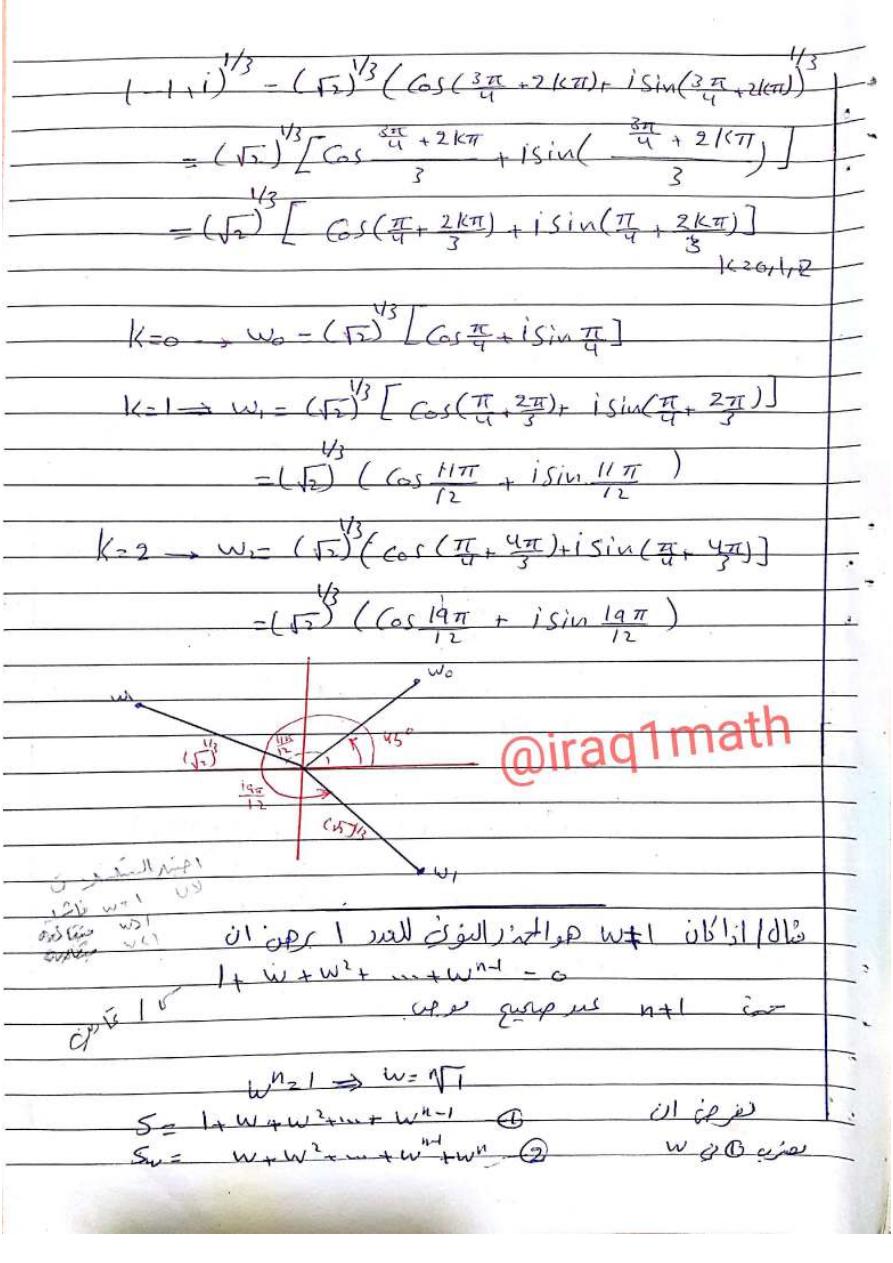 (-1+i)^1/3 = (√2)^1/3 (Cos(3π/4 + 2kπ) + i Sin(3π/4 + 2kπ))^1/3
= (√2)^1/3 [Cos (3π/4 + 2kπ)/3 + i sin( (3π/4 + 2kπ)/3 )]
= (√2)^1/3 [ Cos(π/4 + 2kπ/3) + i sin(π/4 + 2kπ/3)]
k=0,1,2
k=0 → w₀ = (√2)^1/3 [Cos π/4 + i Sin π/4]
k=1 ⇒ w₁ = (√2)^1/3 [ Cos(π/4 + 2π/3) + i Sin(π/4 + 2π/3)]
= (√2)^1/3 ( Cos 11π/12 + i Sin 11π/12 )
k=2 → w₂ = (√2)^1/3 (Cos (π/4 + 4π/3) + i Sin (π/4 + 4π/3)]
= (√2)^1/3 (Cos 19π/12 + i sin 19π/12 )
w₀
(√2)^1/3
11π/12
45°
@iraq1math
19π/12
(√2)^1/3
w₁
مثال/ اذا كان w≠1 هو الجذر النوني للعدد 1 برهن ان
1 + w + w² + ... + w^n-1 = 0
n+1 عدد صحيح موجب
w^n = 1 ⇒ w = ^n√1
نفرض ان S = 1 + w + w² + ... + w^n-1 ①
نضرب ① في w Sw = w + w² + ... + w^n-1 + w^n ②